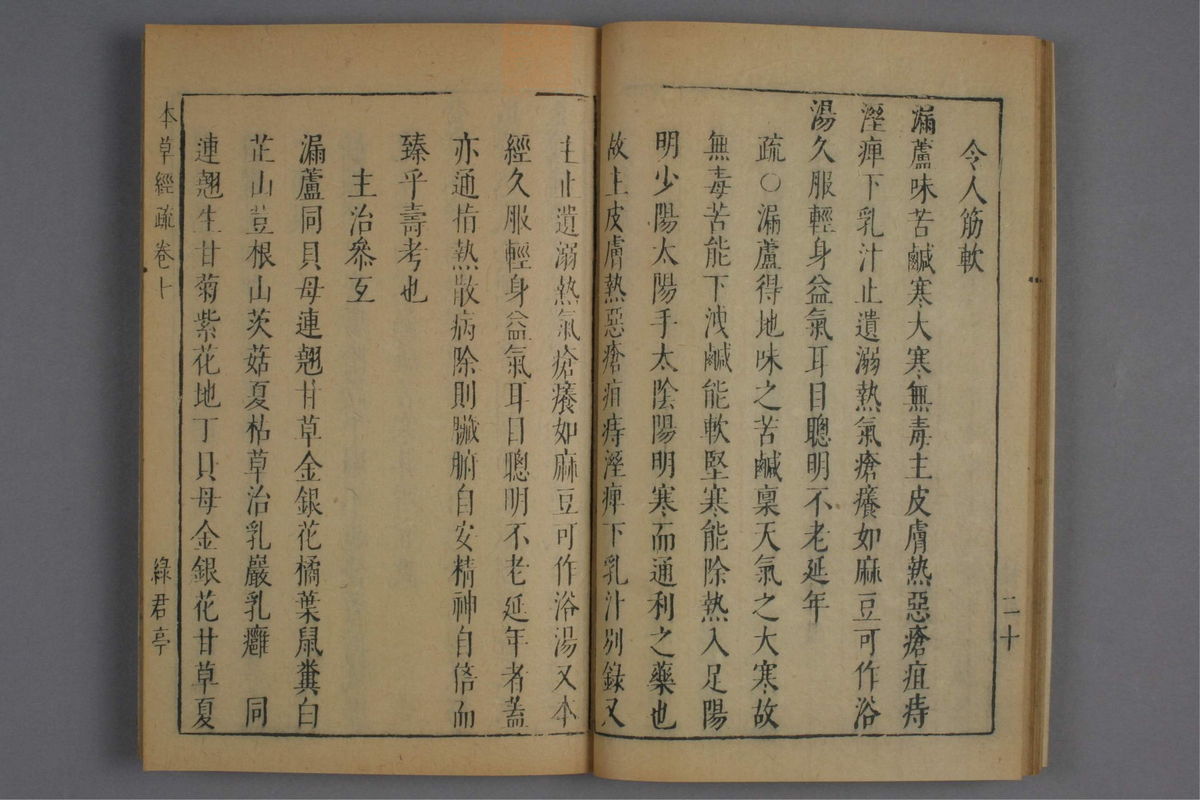 令人筋軟
漏蘆味苦鹹寒大寒無毒主皮膚熱惡瘡疽痔
溼痺下乳汁止遺溺熱氣瘡癢如麻豆可作浴
湯久服輕身益氣耳目聰明不老延年
疏○漏蘆得地味之苦鹹稟天氣之大寒故
無毒苦能下洩鹹能軟堅寒能除熱入足陽
明少陽太陽手太陰陽明寒而通利之藥也
故主皮膚熱惡瘡疽痔溼痺下乳汁別錄又
二十
主止遺溺熱氣瘡癢如麻豆可作浴湯又本
經久服輕身益氣耳目聰明不老延年者蓋
亦通指熱散病除則臟腑自安精神自倍而
臻乎壽考也
主治參互
漏蘆同貝母連翹甘草金銀花橘葉鼠糞白
芷山豆根山茨菇夏枯草治乳巖乳癰 同
連翹生甘菊紫花地丁貝母金銀花甘草夏
本草經疏卷十
綠君亭